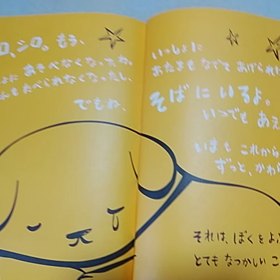 ロ、シロ。もう、
あそべなくなったね。
たべられなくなったし、
でもね、
いっしょに
おたまもなでてあげられ
そばにいるよ。
いつでも
いまと これから
ずっと、かわら
それは、ぼくをよ
とても なつかしい こ